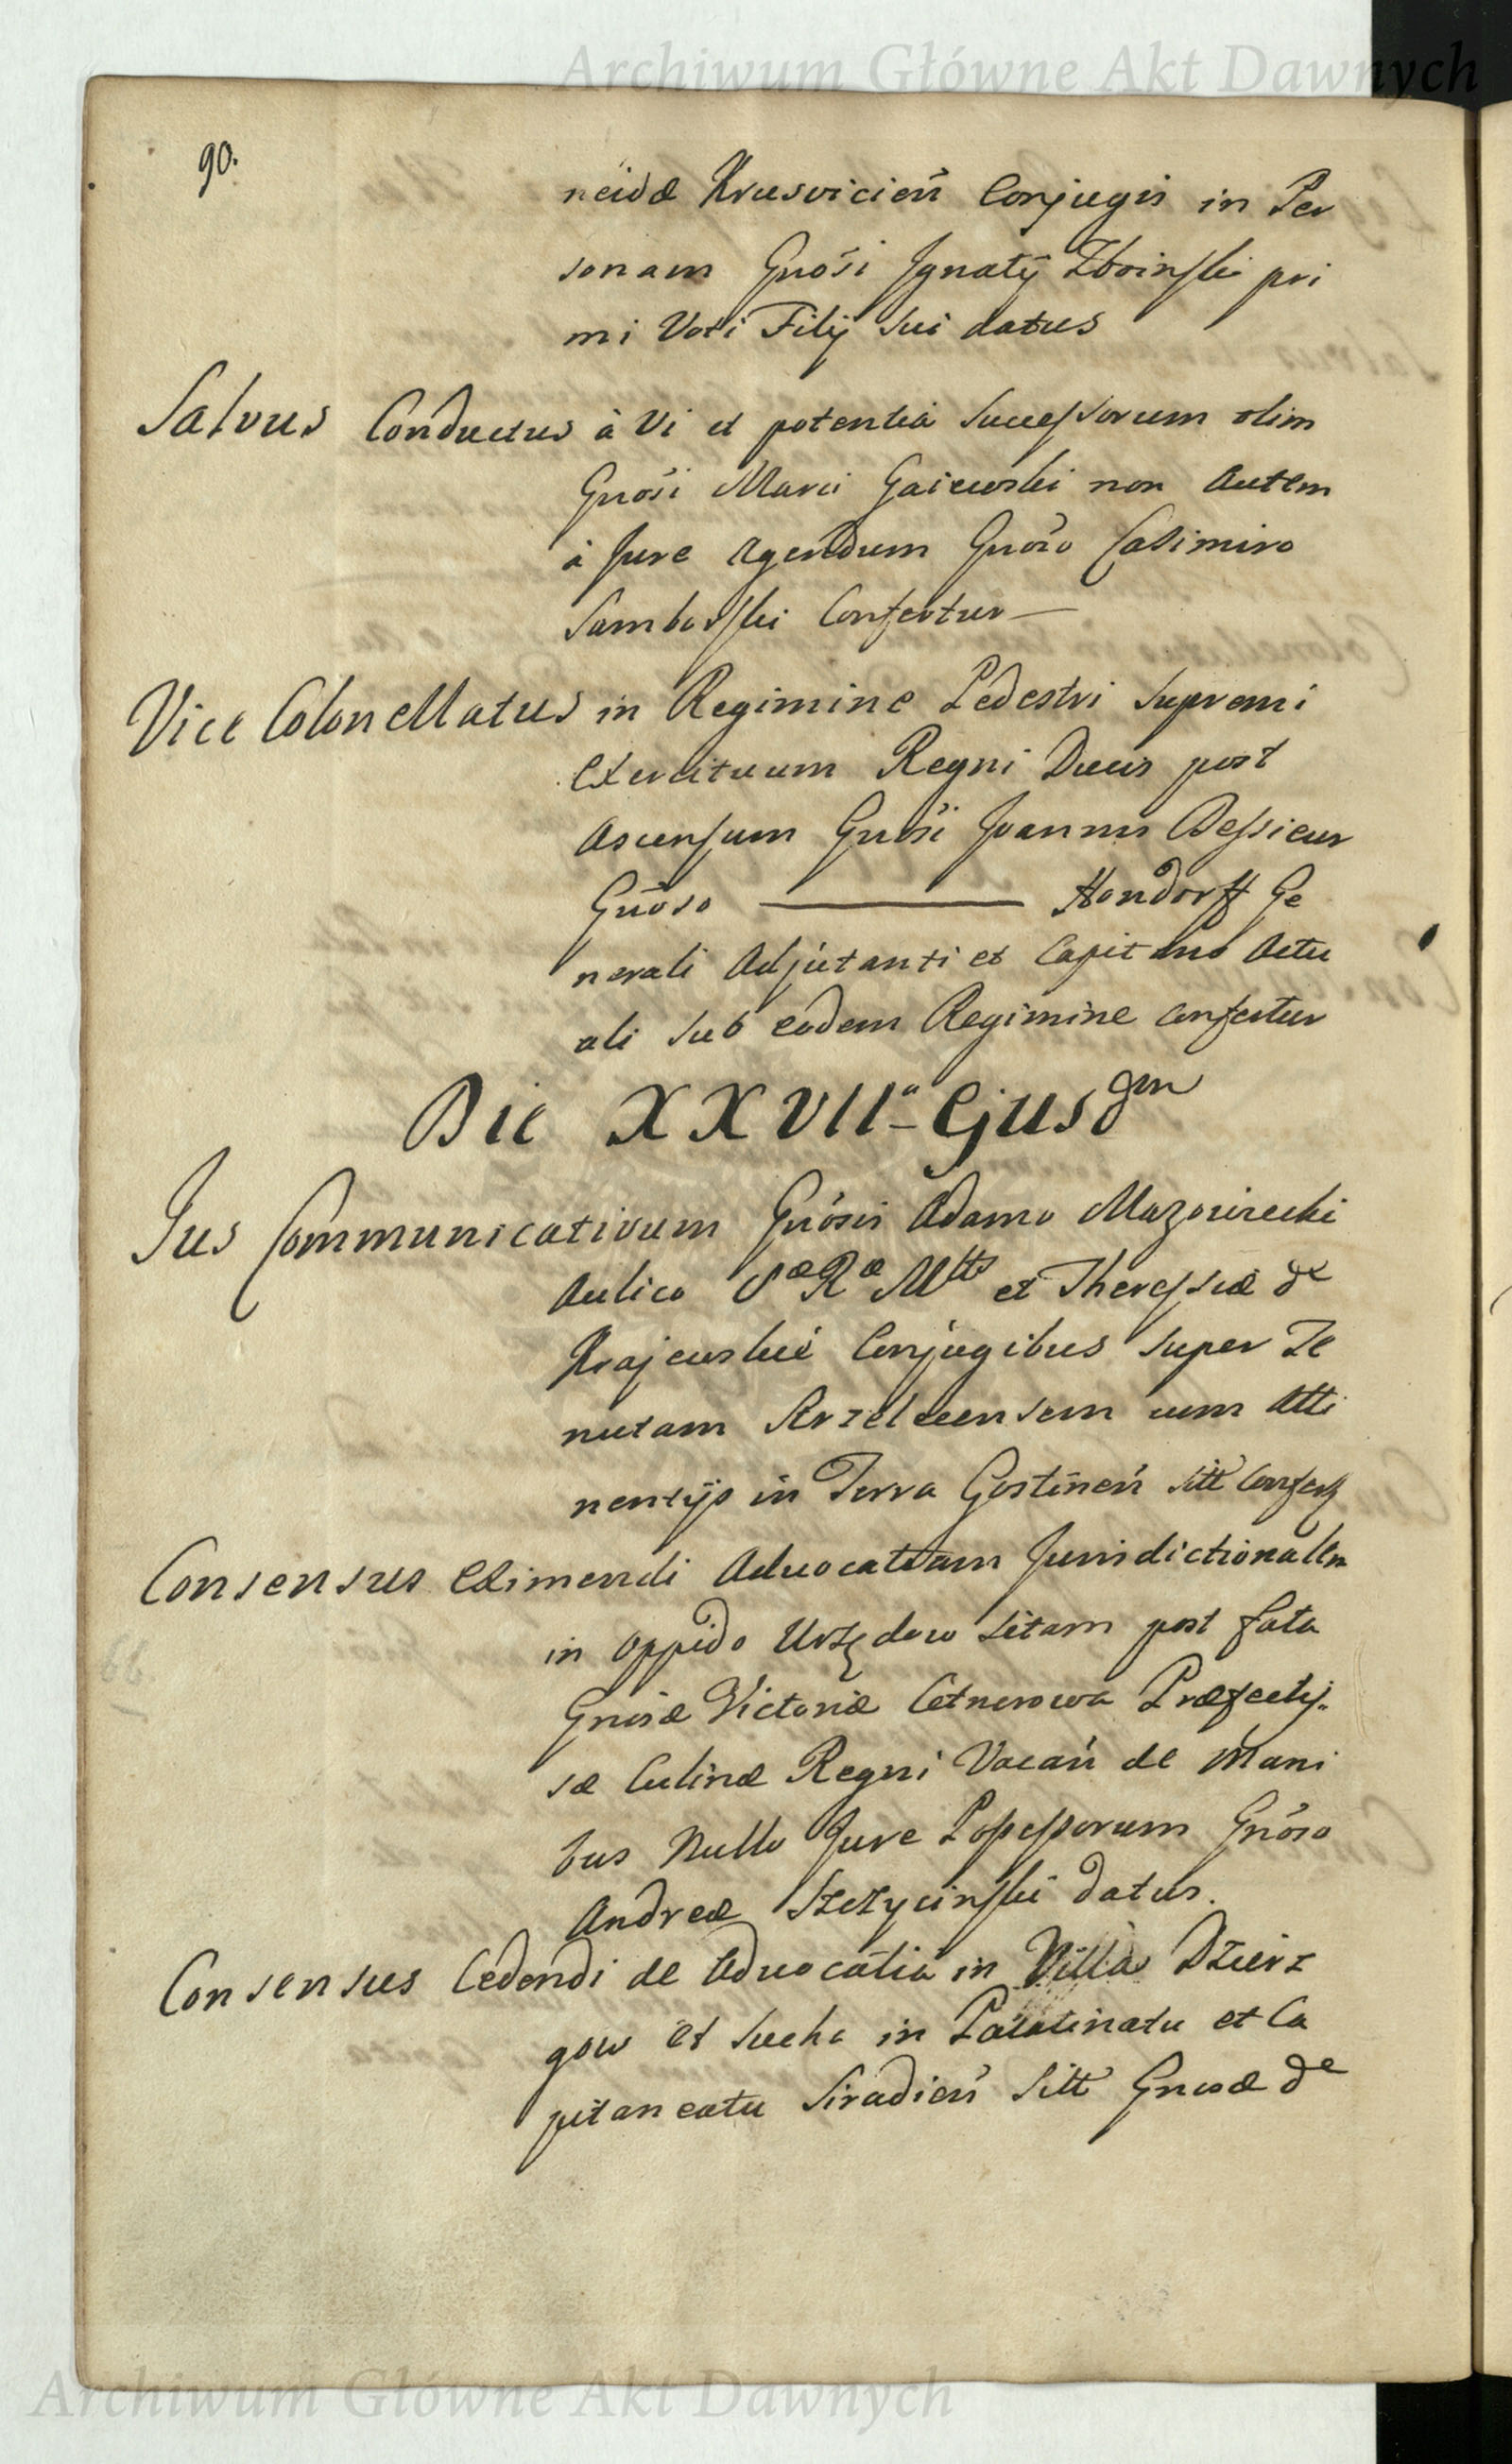 Archiwum Główne Akt Dawnych
90.
neidæ Krusvicieñ Conjugis in Per
sonam Gnosi Ignatÿ Zboinski pri
mi Voti Filÿ sui datus
Salvus Conductus à Vi et potentia Successorum olim
Gnosi Marci Gaiewski non autem
à Jure agendum Gnoso Casimiro
Samborski Confertur—
Vice Colonellatus in Regimine Pedestri supremi
Exercituum Regni Ducis post
Ascensum Gnosi Joannis Bessieur
Gnoso ——— Hondorff Ge
nerali Adjutanti et Capitaneo Actu
ali sub eodem Regimine confertur
Die XXVIIª Ejusdem
Jus Communicativum Gnosis Adamo Mazowiecki
Aulico Sæ Ræ Mttis et Theressiæ de
Krajewskie Conjugibus super Te
nutam cum Atti
nentÿs in Terra Gostineñ sitt Confert
Consensus Eximendi Advocatiam Jurisdictionalem
in oppido Urzędow sitam post fata
Gnosæ Victoriæ Cetnerowa Præfectis
sæ Culinæ Regni Vacañ de Mani
bus Nullo Jure Possessorum Gnoso
Andreæ Szczycinski datus.
Consensus Cedendi de Advocatia in Villa Dzierz
gow et Sucha in Palatinatu et Ca
pitaneatu Siradieñ sitt Gnosæ de
Archiwum Główne Akt Dawnych